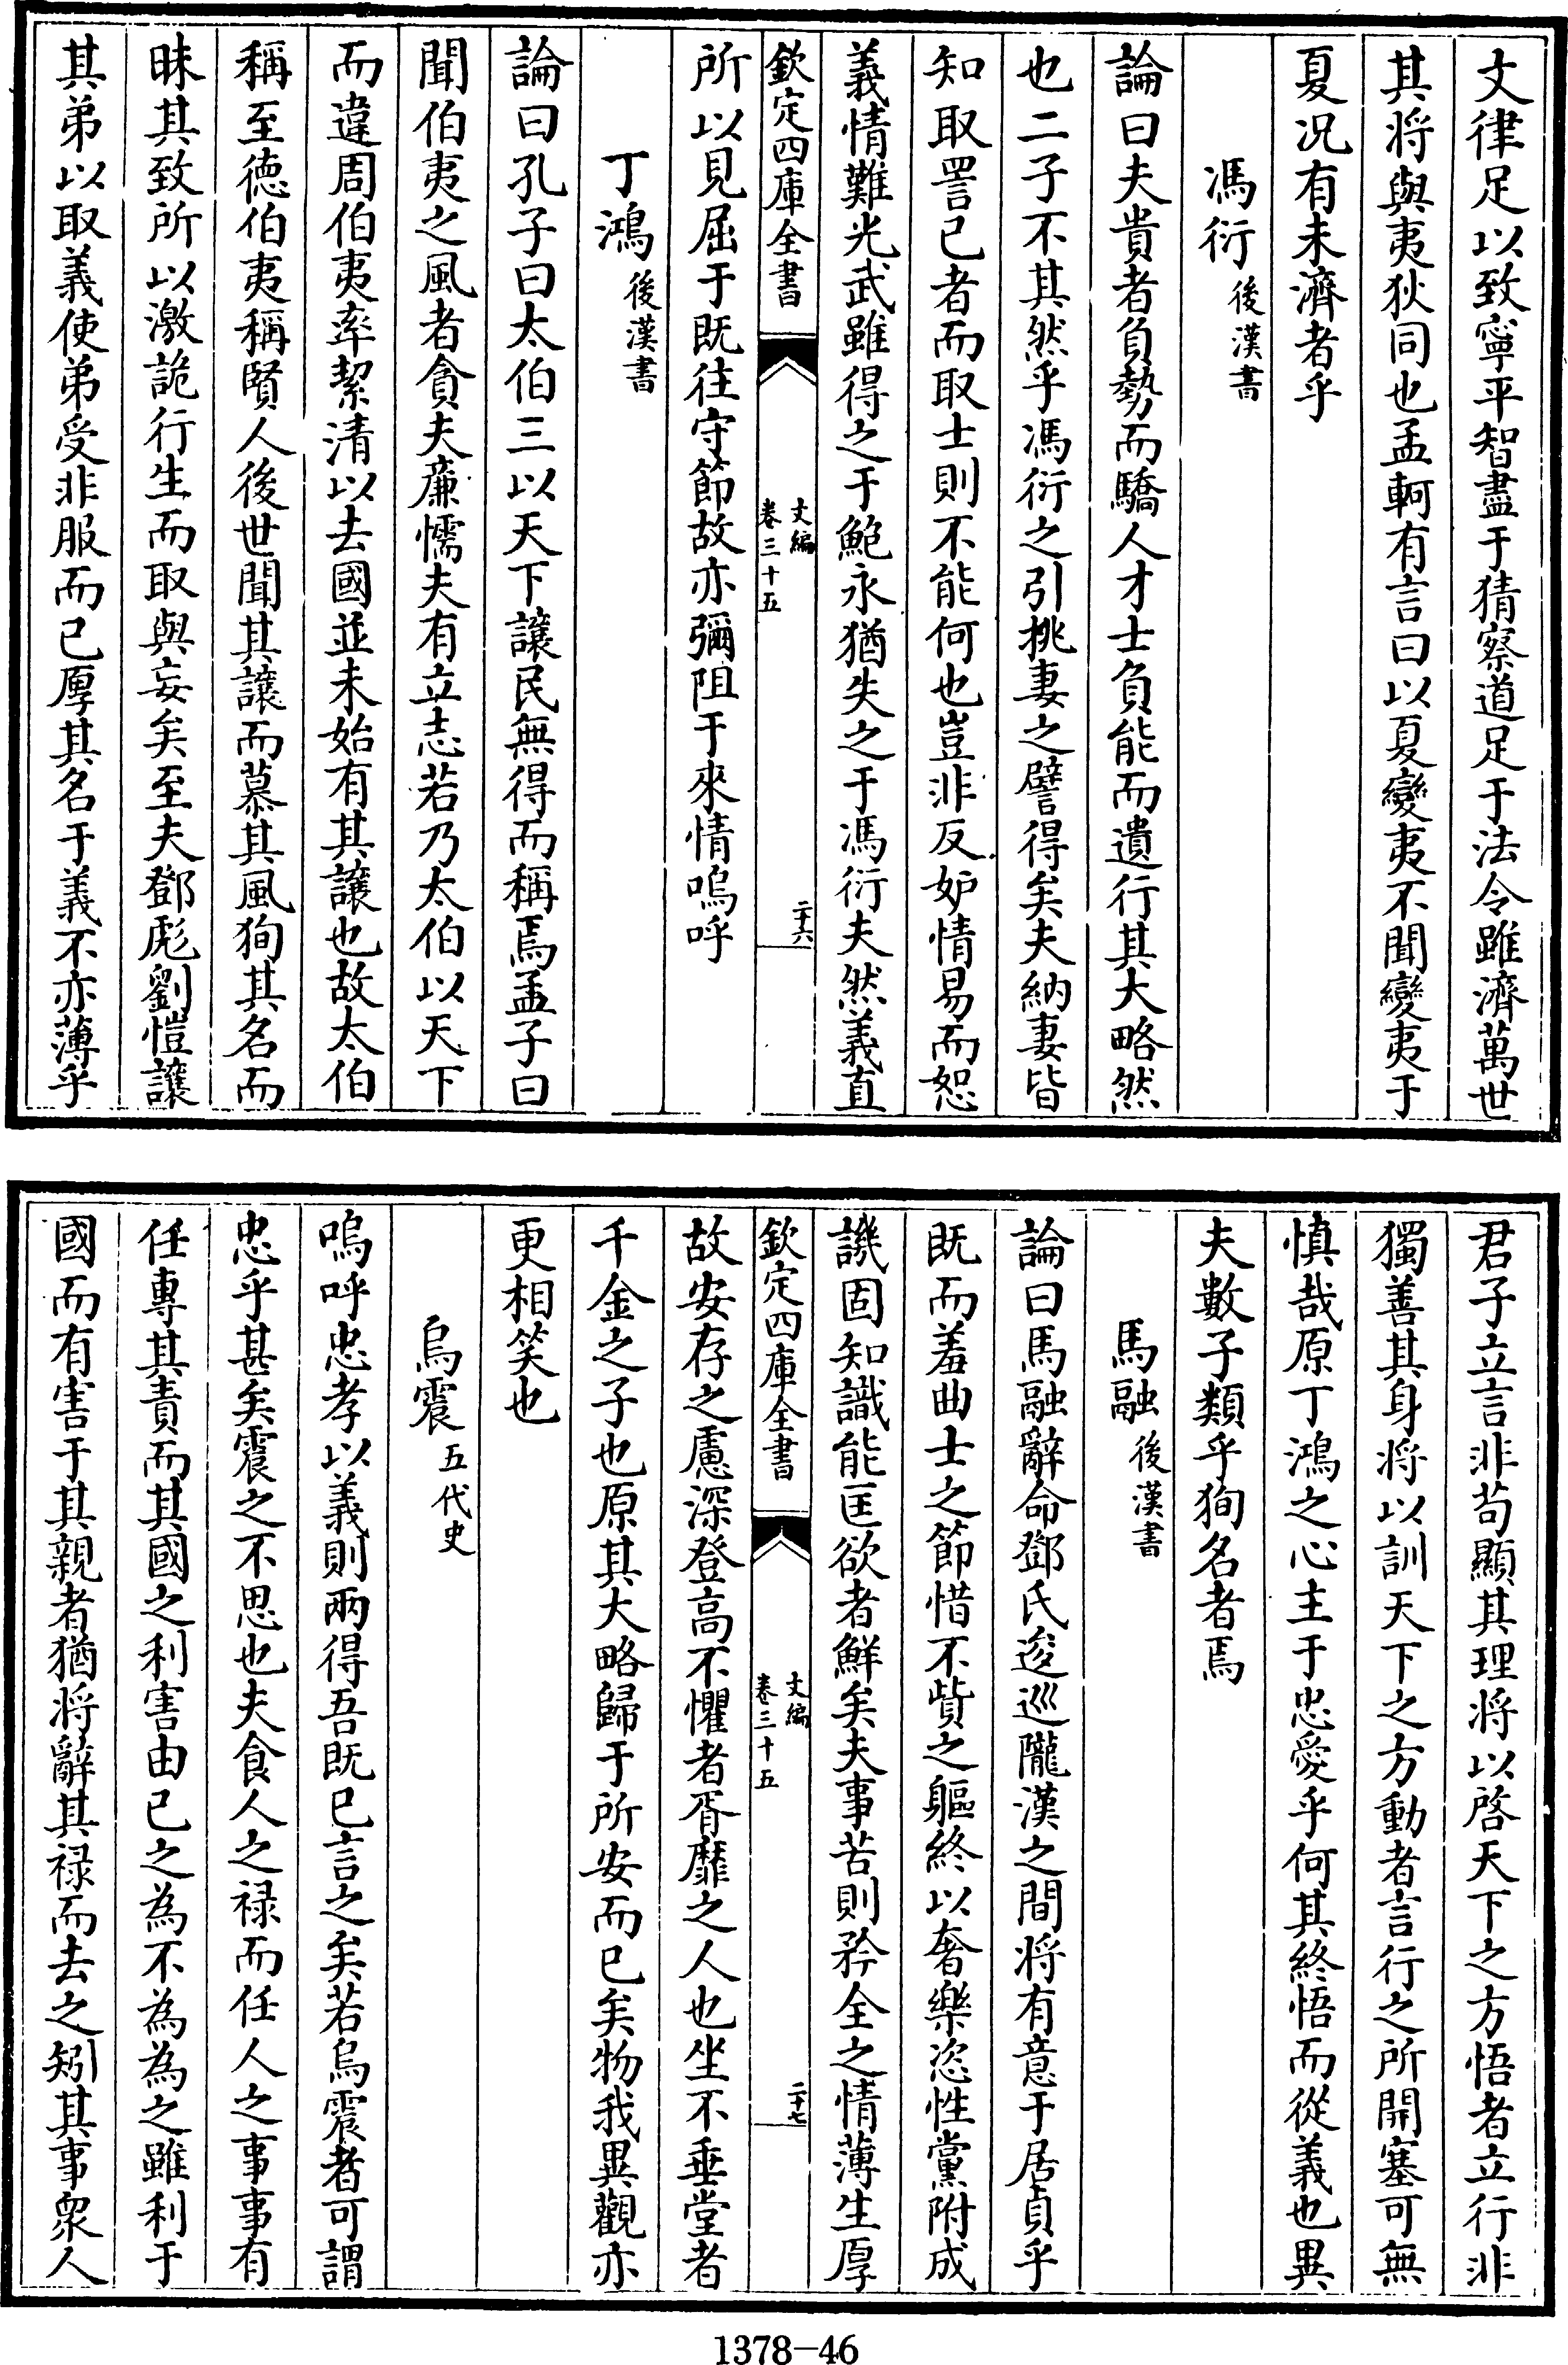 文律足以致寧平智盡于猜察道足于法令雖濟萬世
其將與夷狄同也孟軻有言曰以夏變夷不聞變夷于
夏况有未濟者乎
馮衍後漢書
論曰夫貴者負勢而驕人才士負能而遺行其大略然
也二子不其然乎馮衍之引挑妻之譬得矣夫納妻皆
知取詈已者而取士則不能何也豈非反妒情易而恕
義情難光武雖得之于鮑永猶失之于馮衍夫然義直
欽定四庫全書
文編
卷三十五
二十六
所以見屈于既往守節故亦彌阻于來情嗚呼
丁鴻後漢書
論曰孔子曰太伯三以天下讓民無得而稱焉孟子曰
聞伯夷之風者貪夫廉懦夫有立志若乃太伯以天下
而違周伯夷率絜清以去國並未始有其讓也故太伯
稱至德伯夷稱賢人後世聞其讓而慕其風狥其名而
昧其致所以激詭行生而取與妄矣至夫鄧彪劉愷讓
其弟以取義使弟受非服而已厚其名于義不亦薄乎
君子立言非苟顯其理將以啓天下之方悟者立行非
獨善其身將以訓天下之方動者言行之所開塞可無
慎哉原丁鴻之心主于忠愛乎何其終悟而從義也異
夫數子類乎狥名者焉
馬融後漢書
論曰馬融辭命鄧氏逡巡隴漢之間將有意于居貞乎
既而羞曲士之節惜不貲之軀終以奢樂恣性黨附成
譏固知識能匡欲者鮮矣夫事苦則矜全之情薄生厚
欽定四庫全書
文編
卷三十五
二十七
故安存之慮深登高不懼者胥靡之人也坐不垂堂者
千金之子也原其大略歸于所安而已矣物我異觀亦
更相笑也
烏震五代史
嗚呼忠孝以義則兩得吾既已言之矣若烏震者可謂
忠乎甚矣震之不思也夫食人之禄而任人之事事有
任專其責而其國之利害由已之為不為為之雖利于
國而有害于其親者猶將辭其禄而去之矧其事衆人
1378-46